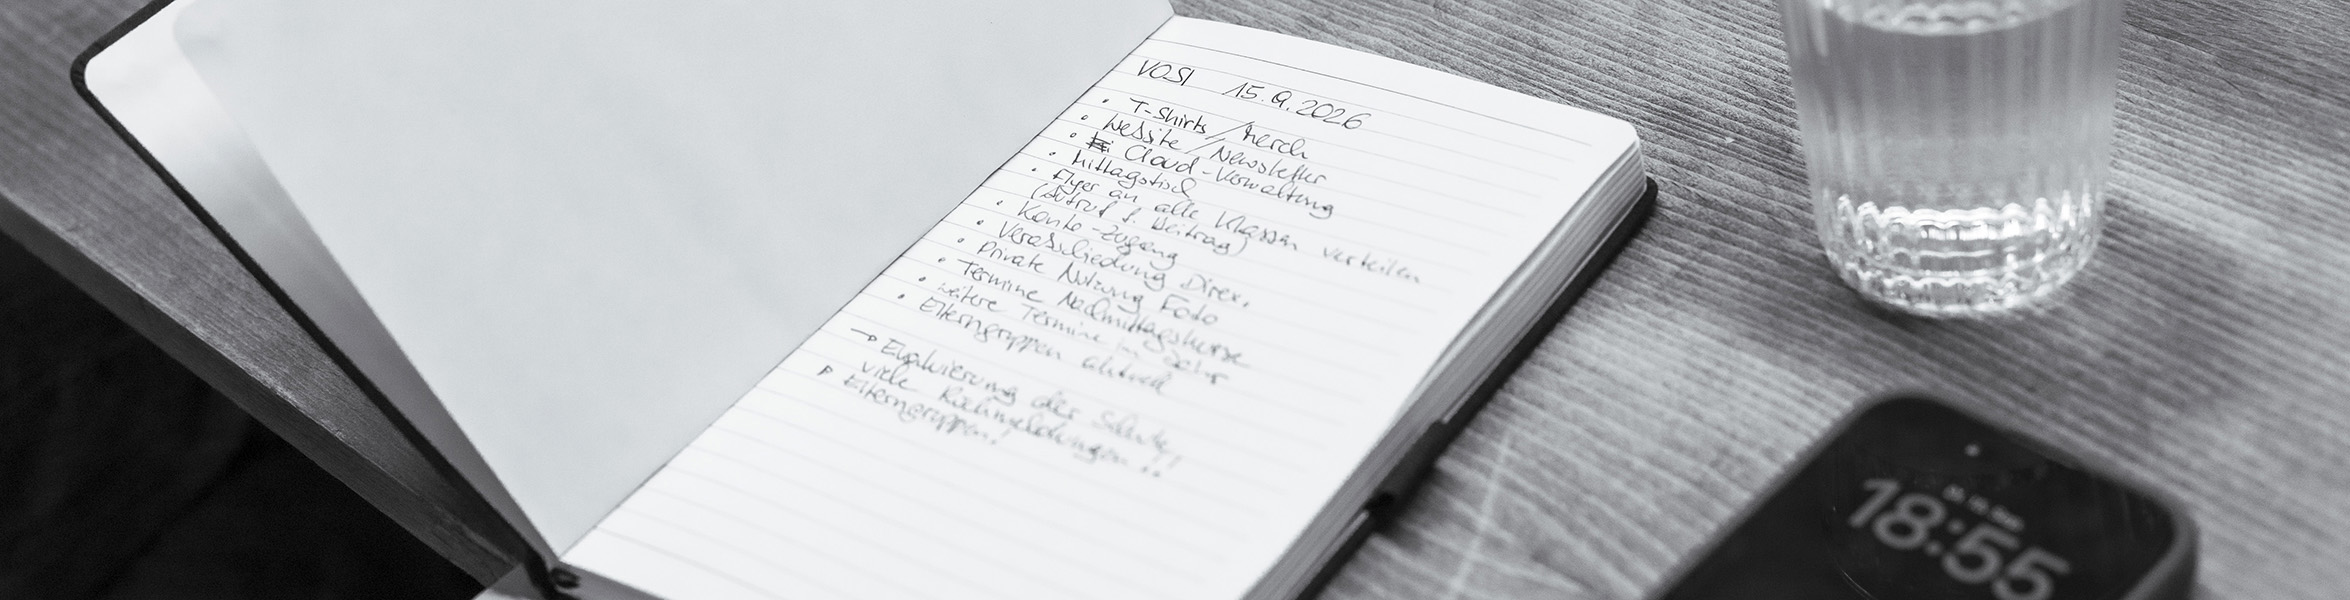 VOSI 15.9.2026
• T-Shirts / Merch
• Website / Newsletter
• Cloud-Verwaltung
• Mittagstisch
• Flyer an alle Klassen verteilen
(Aufruf f. Beitrag)
• Konto-Zugang
• Verabschiedung Direx.
• Private Nutzung Foto
• Termine Nachmittagskurse
• weitere Termine im
• Elterngruppen aktuell
→ Evaluierung der Schule!
viele Rückmeldungen..
Elterngruppen!
18:55